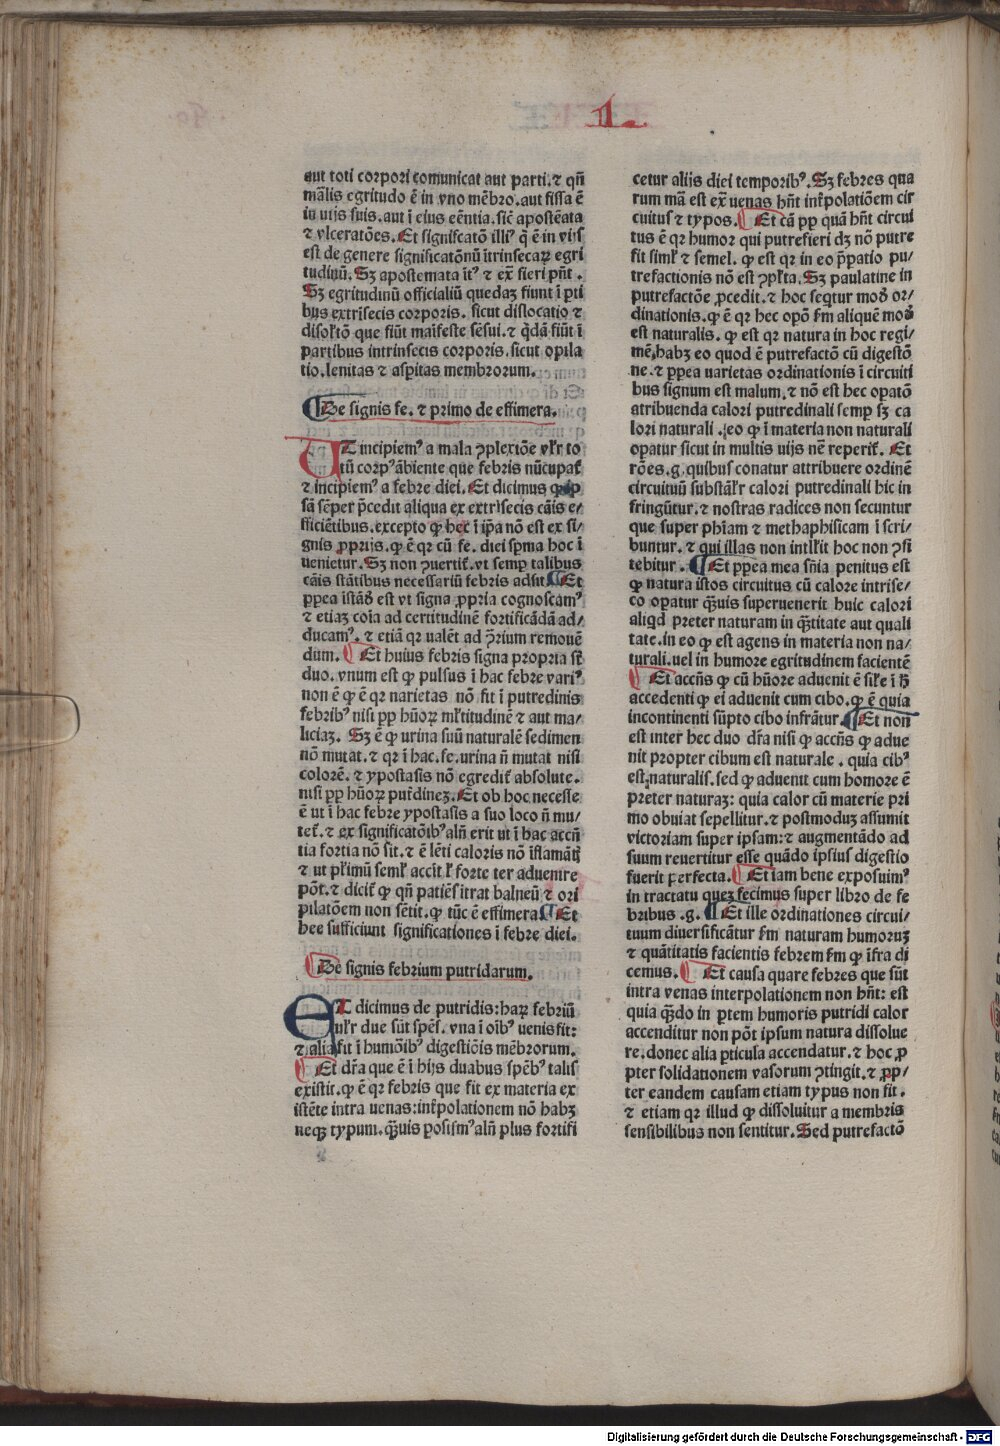 1.
aut toti corpori comunicat aut parti. ⁊ qñ
mãlis egritudo ē in vno mēbro. aut fissa ē
in vijs suis. aut ī eius eēntia. sic̄ apostēata
⁊ vlceratōes. Et significatō illiꝰ q̇ ē in vijs
est de genere significatōnū ītrinsecaꝝ egri
tudinū. Sꝫ apostemata īt᷒ ⁊ ex̄ fieri pn̄t.
Sꝫ egritudinū officialiū quedaꝫ fiunt ī ꝑti
bus extrīsecis corporis. sicut dislocatio ⁊
disoltõ que fiūt maīfeste sēsui. ⁊ q̇dā fiūt ī
partibus intrinsecis corporis. sicut opila
tio. lenitas ⁊ asꝑitas membrorum.
¶ De signis fe. ⁊ primo de effimera.
UT incipiemꝰ a mala ꝯplexiōe vl̄r to
tū corpꝰ ābiente que febris nūcupat᷑
⁊ incipiemꝰ a febre diei. Et dicimus
sā sēper p̄cedit aliqua ex extrīsecis cāis e/
fficiētibus. excepto ꝙ hec ī ip̄a nō est ex si/
gnis ꝓprijs. ꝙ ē qꝛ cū fe. diei sp̄ma hoc ī
uenietur. Sꝫ non ꝯuertit᷑. vt semꝑ talibus
cāis stātibus necessariū febris adsit ¶ Et
ꝓpea īstād᷑ est vt signa ꝓpria cognoscamꝰ
⁊ etiaꝫ coīa ad certitudinē fortificādā ad/
ducamꝰ. ⁊ etiā qꝛ ualēt ad ꝯ̄rium remouē
dum. ¶ Et huius febris signa propria st̄
duo. vnum est ꝙ pulsus ī hac febre variꝰ
non ē ꝙ ē qꝛ varietas nō fit ī putredinis
febribꝰ nisi ꝓp hūoꝝ ml̄titudinē ⁊ aut ma/
liciaꝫ. Sꝫ ē ꝙ urina suū naturalē sedimen
nō mutat. ⁊ qꝛ ī hac. fe. urina n̄ mutat nisi
colorē. ⁊ ypostasis nō egredit᷑ absolute.
nisi ꝓp hūoꝝ put᷑dineꝫ. Et ob hoc necesse
ē ut ī hac febre ypostasis a suo loco n̄ mu/
tet᷑. ⁊ ex significatōibꝰ aln̄ erit ut ī hac accn̄
tia fortia nō sit. ⁊ ē lēti caloris nō īflamāt᷑
⁊ ut pl̄imū seml̄ accīt l᷑ forte ter aduenire
pōt. ⁊ dicit᷑ ꝙ qn̄ patiēs ītrat balneū ⁊ ori
pilatōem non sētit. ꝙ tūc ē effimera ¶ Et
hee sufficiunt significationes ī febre diei.
¶ De signis febrium putridarum.
ET dicimus de putridis: haꝝ febriū
vl̄r due sūt spēs. vna ī oībꝰ uenis fit:
⁊ alia fit ī humōibꝰ digestiōis mēbrorum.
¶ Et dr̄a que ē ī hijs duabus spēbꝰ talis
existit. ꝙ ē qꝛ febris que fit ex materia ex
istēte intra uenas: int᷑polationem nō habꝫ
neqꝫ typum. q̄uis posīsmꝰ aln̄ plus fortifi
cetur alijs diei temporibꝰ. Sꝫ febres qua
rum mā est ex̄ uenas hn̄t int᷑polatiōem cir
cuitus ⁊ typos. ¶ Et cā ꝓp quā hn̄t circui
tus ē qꝛ humor qui putrefieri dꝫ nō putre
fit siml̄ ⁊ semel. ꝙ est qꝛ in eo p̄patio pu/
trefactionis nō est ꝯpl̄ta. Sꝫ paulatine in
putrefactōe ꝓcedit. ⁊ hoc seqtur mod᷑ or/
dinationis. ꝙ ē qꝛ hec opō fm aliquē mod᷑
est naturalis. ꝙ est qꝛ natura in hoc regi/
mē habꝫ eo quod ē putrefactō cū digestō
ne. ⁊ ꝓpea uarietas ordinationis ī circuiti
bus signum est malum. ⁊ nō est hec opatō
atribuenda calori putredinali semꝑ sꝫ ca
lori naturali. eo ꝙ ī materia non naturali
opatur sicut in multis uijs nr̄e reperit᷑. Et
rōes. g. quibus conatur attribuere ordinē
circuituū substāl̄r calori putredinali hic in
fringūtur. ⁊ nostras radices non secuntur
que super phīam ⁊ methaphisicam ī scri/
buntur. ⁊ qui illas non intll̄it hoc non ꝯsī
tebitur. ¶ Et ꝓpea mea sn̄ia penitus est
ꝙ natura istos circuitus cū calore intrīse/
co opatur q̄uis superuenerit huic calori
aliqd preter naturam in q̄titate aut quali
tate. in eo ꝙ est agens in materia non na/
turali. uel in humore egritudinem facientē
¶ Et accn̄s ꝙ cū hūore aduenit ē sil̄e ī ħ
accedenti ꝙ ei aduenit cum cibo. ꝙ ē quia
incontinenti sūpto cibo infrātur. ¶ Et non
est inter hec duo dr̄a nisi ꝙ accn̄s ꝙ adue
nit propter cibum est naturale. quia cibꝰ
est naturalis. sed ꝙ aduenit cum homore ē
preter naturaꝫ: quia calor cū materie pri
mo obuiat sepellitur. ⁊ postmoduꝫ assumit
victoriam super ipsam: ⁊ augmentādo ad
suum reuertitur esse quādo ipsius digestio
fuerit perfecta. ¶ Et iam bene exposuimꝰ
in tractatu queꝫ fecimus super libro de fe
bribus .g. ¶ Et ille ordinationes circui/
tuum diuersificātur fm naturam humoruꝫ
⁊ quātitatis facientis febrem fm ꝙ īfra di
cemus. ¶ Et causa quare febres que sūt
intra venas interpolationem non hn̄t: est
quia q̄do in ꝑtem humoris putridi calor
accenditur non pōt ipsum natura dissolue
re. donec alia ꝑticula accendatur. ⁊ hoc ꝓ
pter solidationem vasorum ꝯtingit. ⁊ ꝓp/
ter eandem causam etiam typus non fit.
⁊ etiam qꝛ illud ꝙ dissoluitur a membris
sensibilibus non sentitur. Sed putrefactō
Digitalisierung gefördert durch die Deutsche Forschungsgemeinschaft - DFG